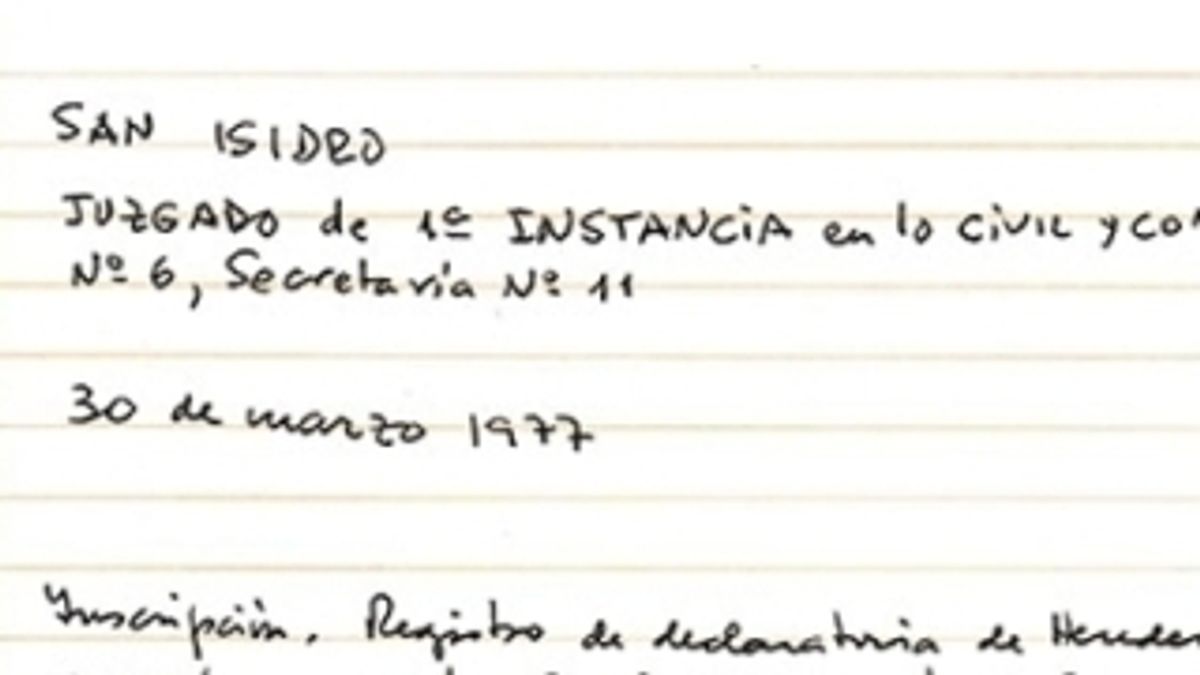 SAN ISIDRO
JUZGADO de 1ª INSTANCIA en lo CIVIL y CO
Nº 6, Secretaría Nº 11
30 de marzo 1977
Inscripción. Registro de declaratoria de Hereder